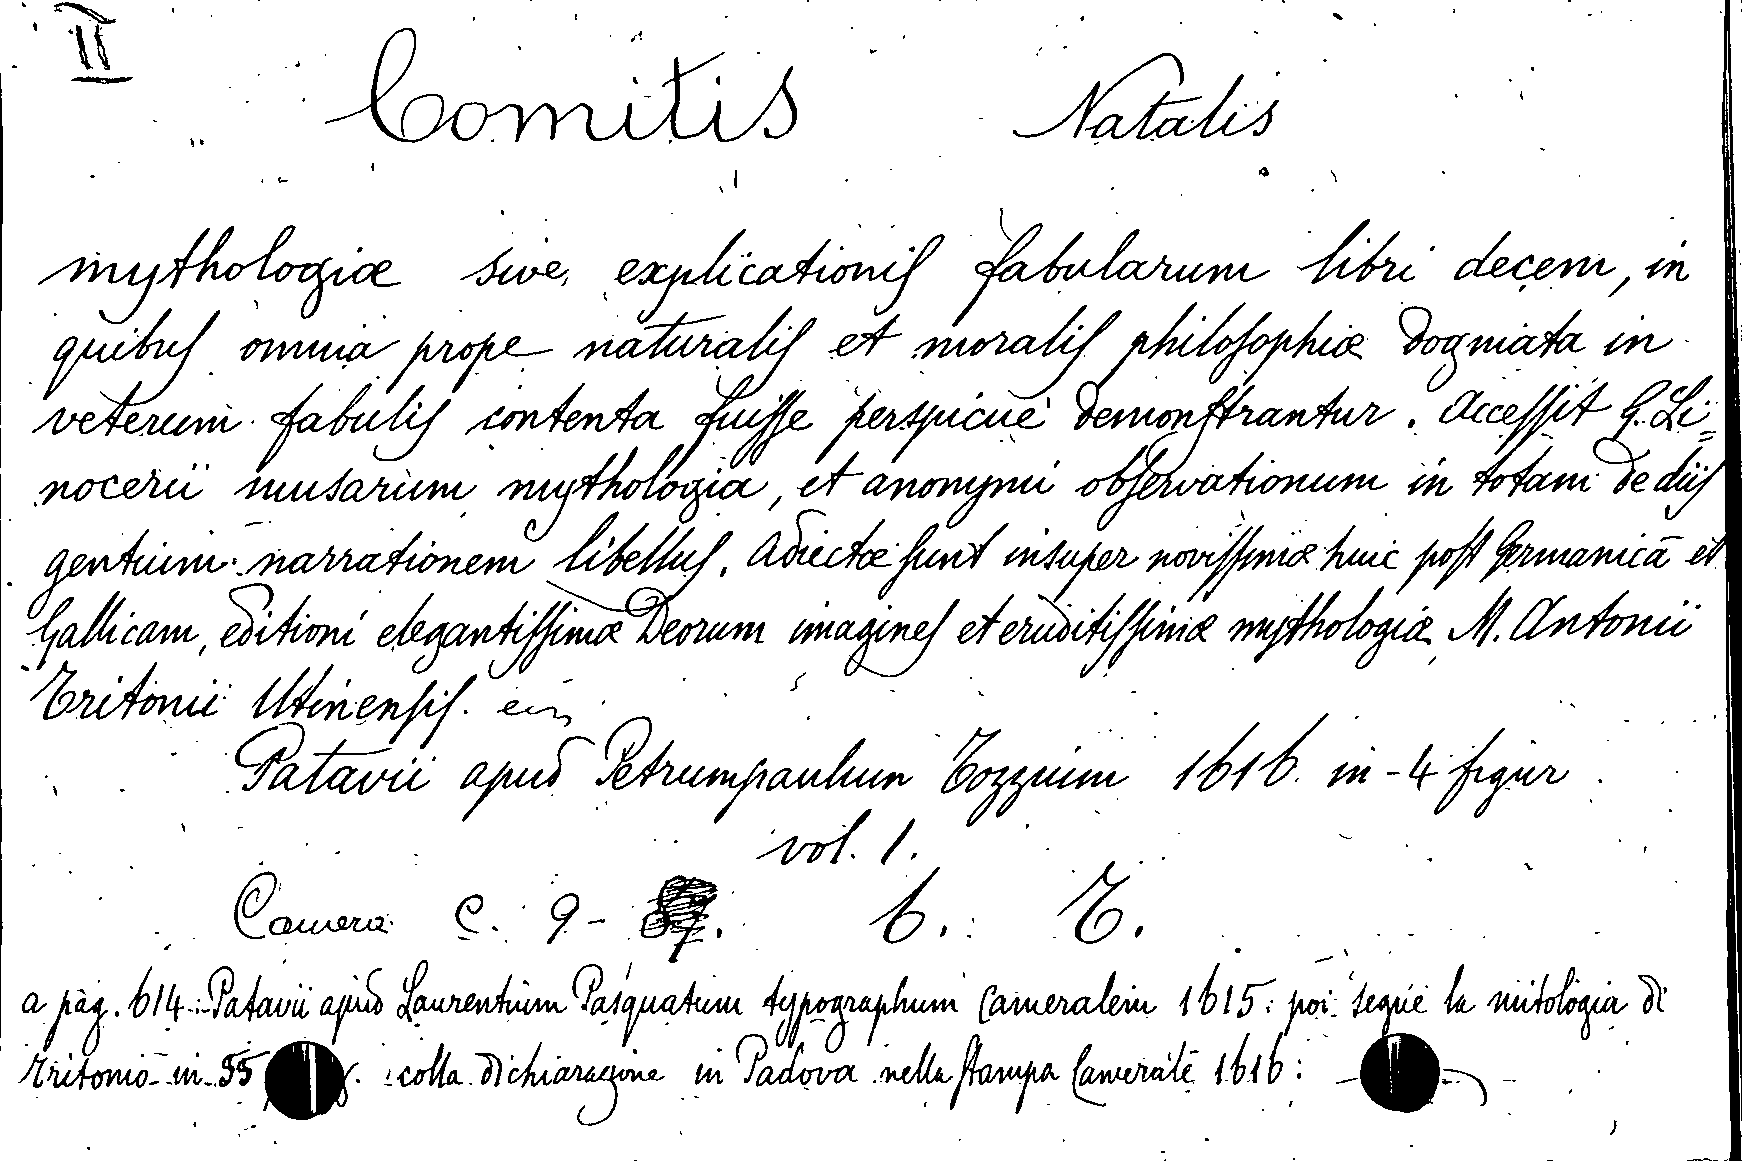 II
Comitis Natalis
mythologiæ sive explicationis fabularum libri decem, in
quibus omnia prope naturalis et moralis philosophiæ dogmata in
veterum fabulis contenta fuisse perspicue demonstrantur. Accessit G. Li=
nocerii musarum mythologia, et anonymi observationum in totam de diis
gentium narrationem libellus. Adiectæ sunt insuper novissimæ huic post Germanicā et
Gallicam, editioni elegantissimæ Deorum imagines et eruditissimæ mythologiæ M. Antonii
Tritonii Utinensis.
Patavii apud Petrumpaulum Tozzium 1616. in-4 figur
vol. 1.
Camera C. 9-. C. T.
a pag. 614: Patavii apud Laurentium Pasquatum typographum Cameralem 1615: poi segue la mitologia di
Tritonio in 55 colla dichiarazione in Padova nella stampa Camerale 1616: